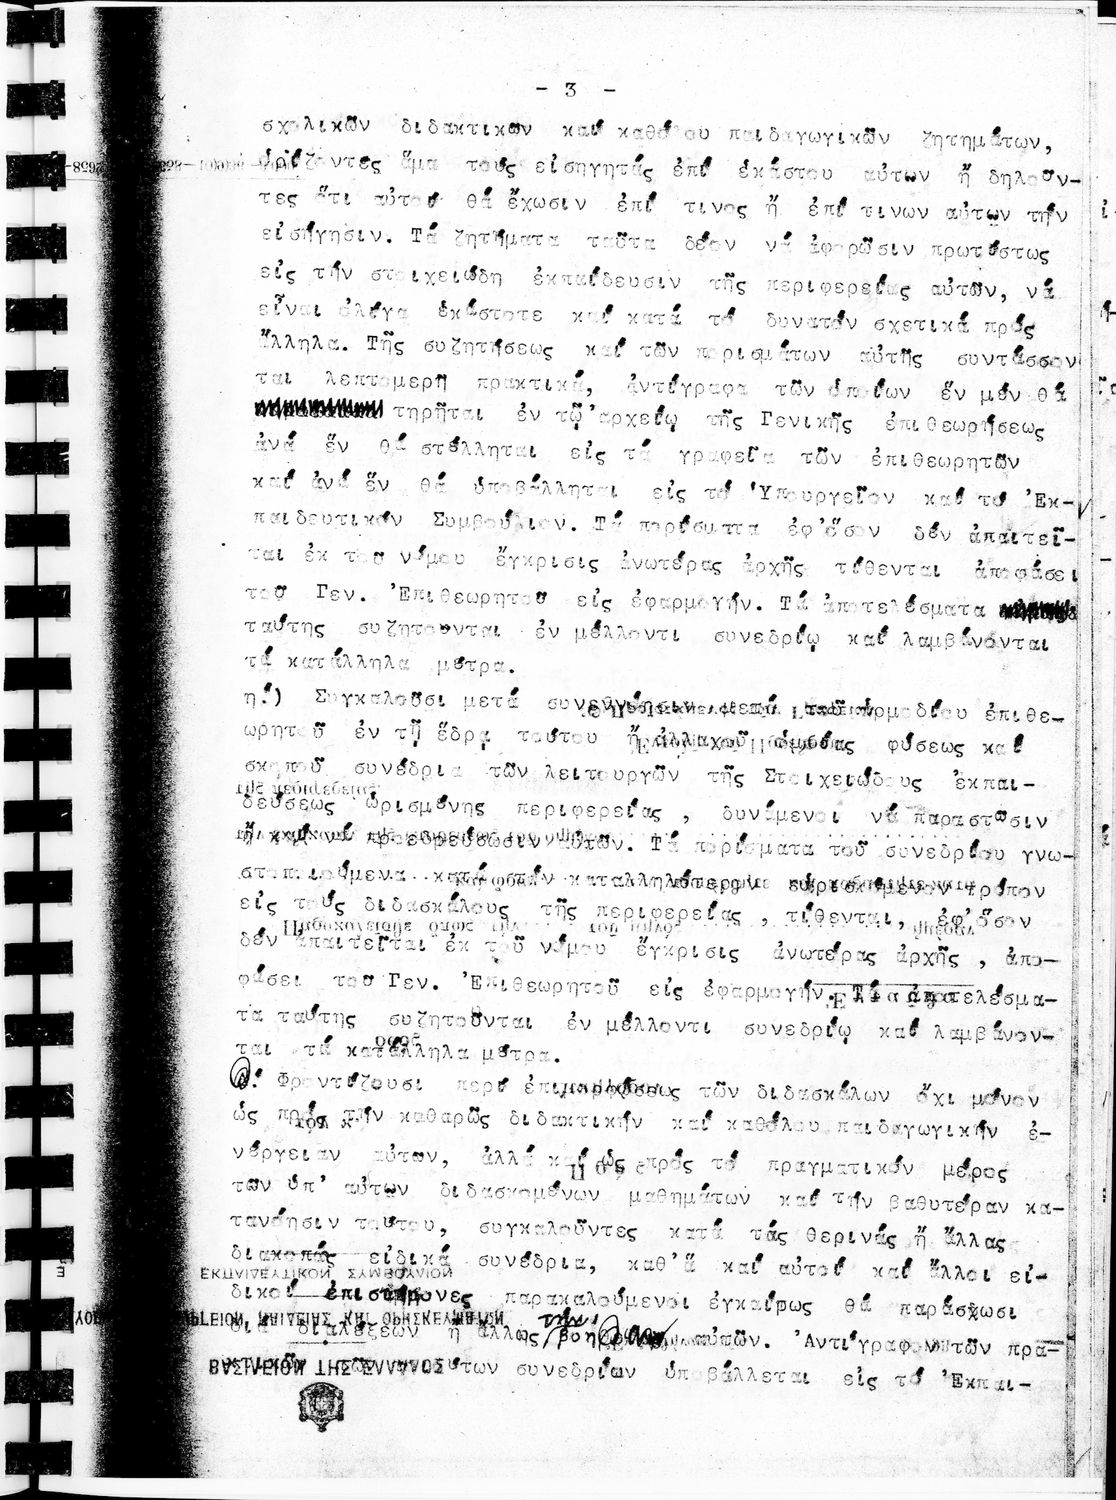 - 3 -
σχολικῶν διδακτικῶν καί καθόλου παιδαγωγικῶν ζητημάτων,
ὁρίζοντες ἅμα τούς εἰσηγητάς ἐπί ἑκάστου αὐτῶν ἤ δηλοῦν-
τες ὅτι αὐτοί θά ἔχωσιν ἐπί τινος ἤ ἐπί τινων αὐτῶν τήν
εἰσήγησιν. Τά ζητήματα ταῦτα δέον νά ἀφορῶσιν πρωτίστως
εἰς τήν στοιχειώδη ἐκπαίδευσιν τῆς περιφερείας αὐτῶν, νά
εἶναι ὀλίγα ἑκάστοτε καί κατά τό δυνατόν σχετικά πρός
ἄλληλα. Τῆς συζητήσεως καί τῶν πορισμάτων αὐτῆς συντάσσον
ται λεπτομερῆ πρακτικά, ἀντίγραφα τῶν ὁποίων ἕν μέν θά
τηρῆται ἐν τῷ ἀρχείῳ τῆς Γενικῆς ἐπιθεωρήσεως
ἀνά ἕν θά στέλληται εἰς τά γραφεῖα τῶν ἐπιθεωρητῶν
καί ἀνά ἕν θά ὑποβάλληται εἰς τό Ὑπουργεῖον καί τό Ἐκ-
παιδευτικόν Συμβούλιον. Τά πορίσματα ἐφ'ὅσον δέν ἀπαιτεῖ-
ται ἐκ τοῦ νόμου ἔγκρισις ἀνωτέρας ἀρχῆς τίθενται ἀποφάσει
τοῦ Γεν. Ἐπιθεωρητοῦ εἰς ἐφαρμογήν. Τά ἀποτελέσματα
ταύτης συζητοῦνται ἐν μέλλοντι συνεδρίῳ καί λαμβάνονται
τά κατάλληλα μέτρα.
η.) Συγκαλοῦσι μετά συνεννόησιν μετά τοῦ ἁρμοδίου ἐπιθε-
ωρητοῦ ἐν τῇ ἕδρᾳ τούτου ἤ ἀλλαχοῦ ὁμοίας φύσεως καί
σκοποῦ συνέδρια τῶν λειτουργῶν τῆς Στοιχειώδους Ἐκπαι-
δεύσεως ὡρισμένης περιφερείας, δυνάμενοι νά παραστῶσιν
ἤ καί νά προεδρεύσωσιν αὐτῶν. Τά πορίσματα τοῦ συνεδρίου γνω-
στοποιούμενα κατά τόν καταλληλότερον εὑρισκόμενον τρόπον
εἰς τούς διδασκάλους τῆς περιφερείας, τίθενται, ἐφ'ὅσον
δέν ἀπαιτεῖται ἐκ τοῦ νόμου ἔγκρισις ἀνωτέρας ἀρχῆς, ἀπο-
φάσει τοῦ Γεν. Ἐπιθεωρητοῦ εἰς ἐφαρμογήν. Τά ἀποτελέσμα-
τα ταύτης συζητοῦνται ἐν μέλλοντι συνεδρίῳ καί λαμβάνον-
ται τά κατάλληλα μέτρα.
Φροντίζουσι περί ἐπιμορφώσεως τῶν διδασκάλων ὄχι μόνον
ὡς πρός τήν καθαρῶς διδακτικήν καί καθόλου παιδαγωγικήν ἐ-
νέργειαν αὐτῶν, ἀλλά καί ὡς πρός τό πραγματικόν μέρος
τῶν ὑπ' αὐτῶν διδασκομένων μαθημάτων καί τήν βαθυτέραν κα-
τανόησιν τούτου, συγκαλοῦντες κατά τάς θερινάς ἤ ἄλλας
διακοπάς εἰδικά συνέδρια, καθ'ἅ καί αὐτοί καί ἄλλοι εἰ-
δικοί ἐπιστήμονες παρακαλούμενοι ἐγκαίρως θά παράσχωσι
διά διαλέξεων ἤ ἄλλως τήν βοήθειαν αὐτῶν. Ἀντίγραφον τῶν πρα-
των συνεδρίων ὑποβάλλεται εἰς τό Ἐκπαι-
ΕΚΠΑΙΔΕΥΤΙΚΟΝ ΣΥΜΒΟΥΛΙΟΝ
ΠΑΙΔΕΙΑΣ ΚΑΙ ΘΡΗΣΚΕΥΜΑΤΩΝ
ΒΑΣΙΛΕΙΟΝ ΤΗΣ ΕΛΛΑΔΟΣ